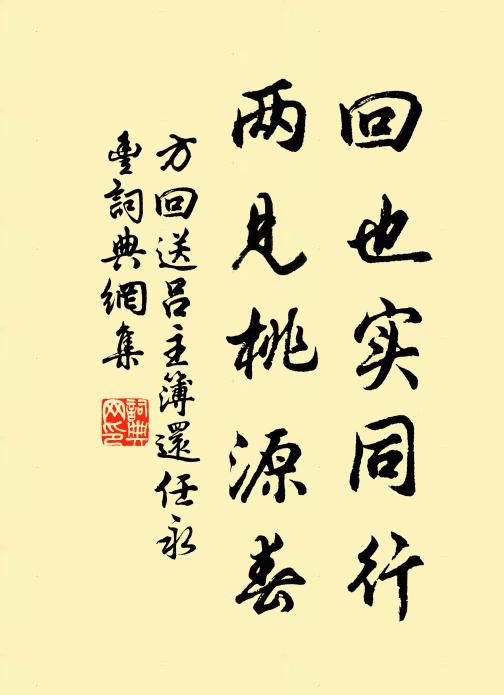 回也实同行
两见桃源春
方回送吕主簿還任永
豊詞典網集
詞典网印